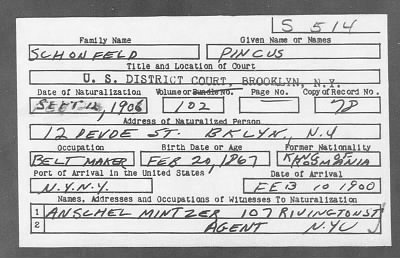 S 514
Family Name Given Name or Names
SCHONFELD PINCUS
Title and Location of Court
U. S. DISTRICT COURT, BROOKLYN, N.Y.
Date of Naturalization Volume or Bundle No. Page No. Copy of Record No.
SEPT 12, 1906 102 — 78
Address of Naturalized Person
12 DEVOE ST. BKLYN, N.Y
Occupation Birth Date or Age Former Nationality
BELT MAKER FEB 20, 1867 K OF ROUMANIA
Port of Arrival in the United States Date of Arrival
N.Y.N.Y. FEB 10 1900
Names, Addresses and Occupations of Witnesses To Naturalization
1 ANSCHEL MINTZER 107 RIVINGTON ST
2 AGENT NYC